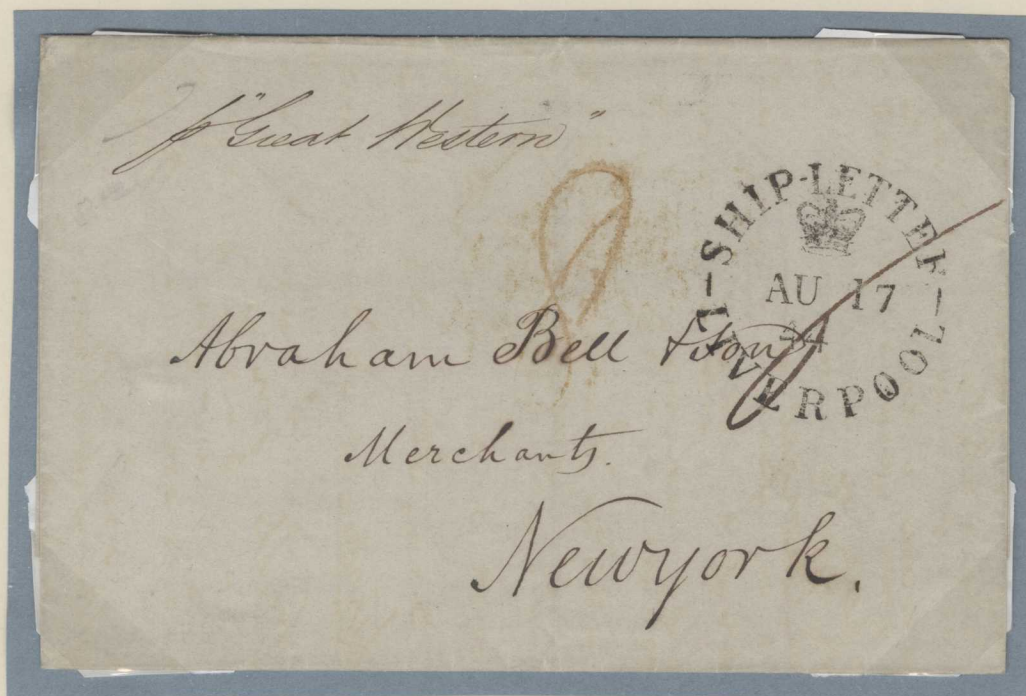 p "Great Western"
SHIP-LETTER
AU 17
44
LIVERPOOL
8
Abraham Bell & Son
Merchants.
Newyork.